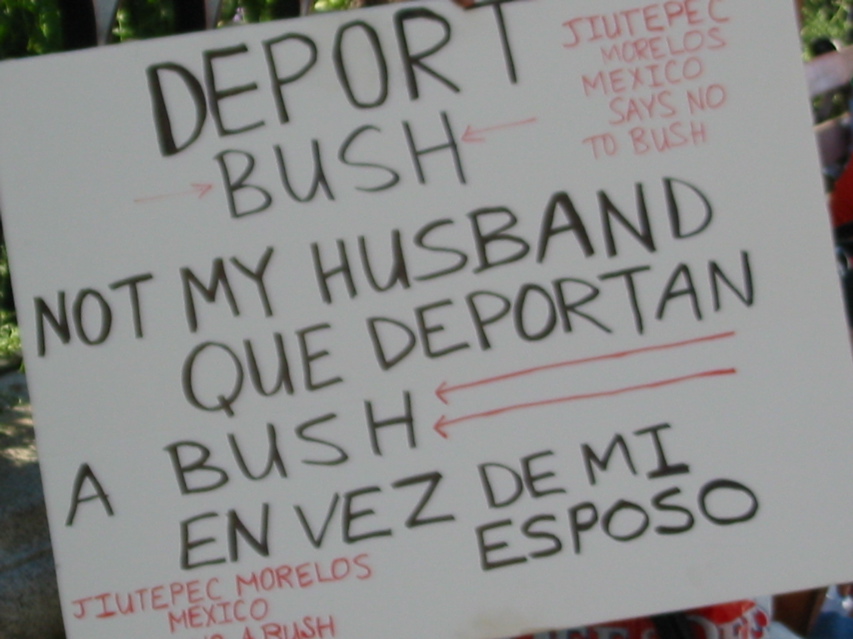 DEPORT
BUSH
NOT MY HUSBAND
QUE DEPORTAN
A BUSH
EN VEZ DE MI
ESPOSO
JIUTEPEC
MORELOS
MEXICO
SAYS NO
TO BUSH
JIUTEPEC MORELOS
MEXICO
A BUSH